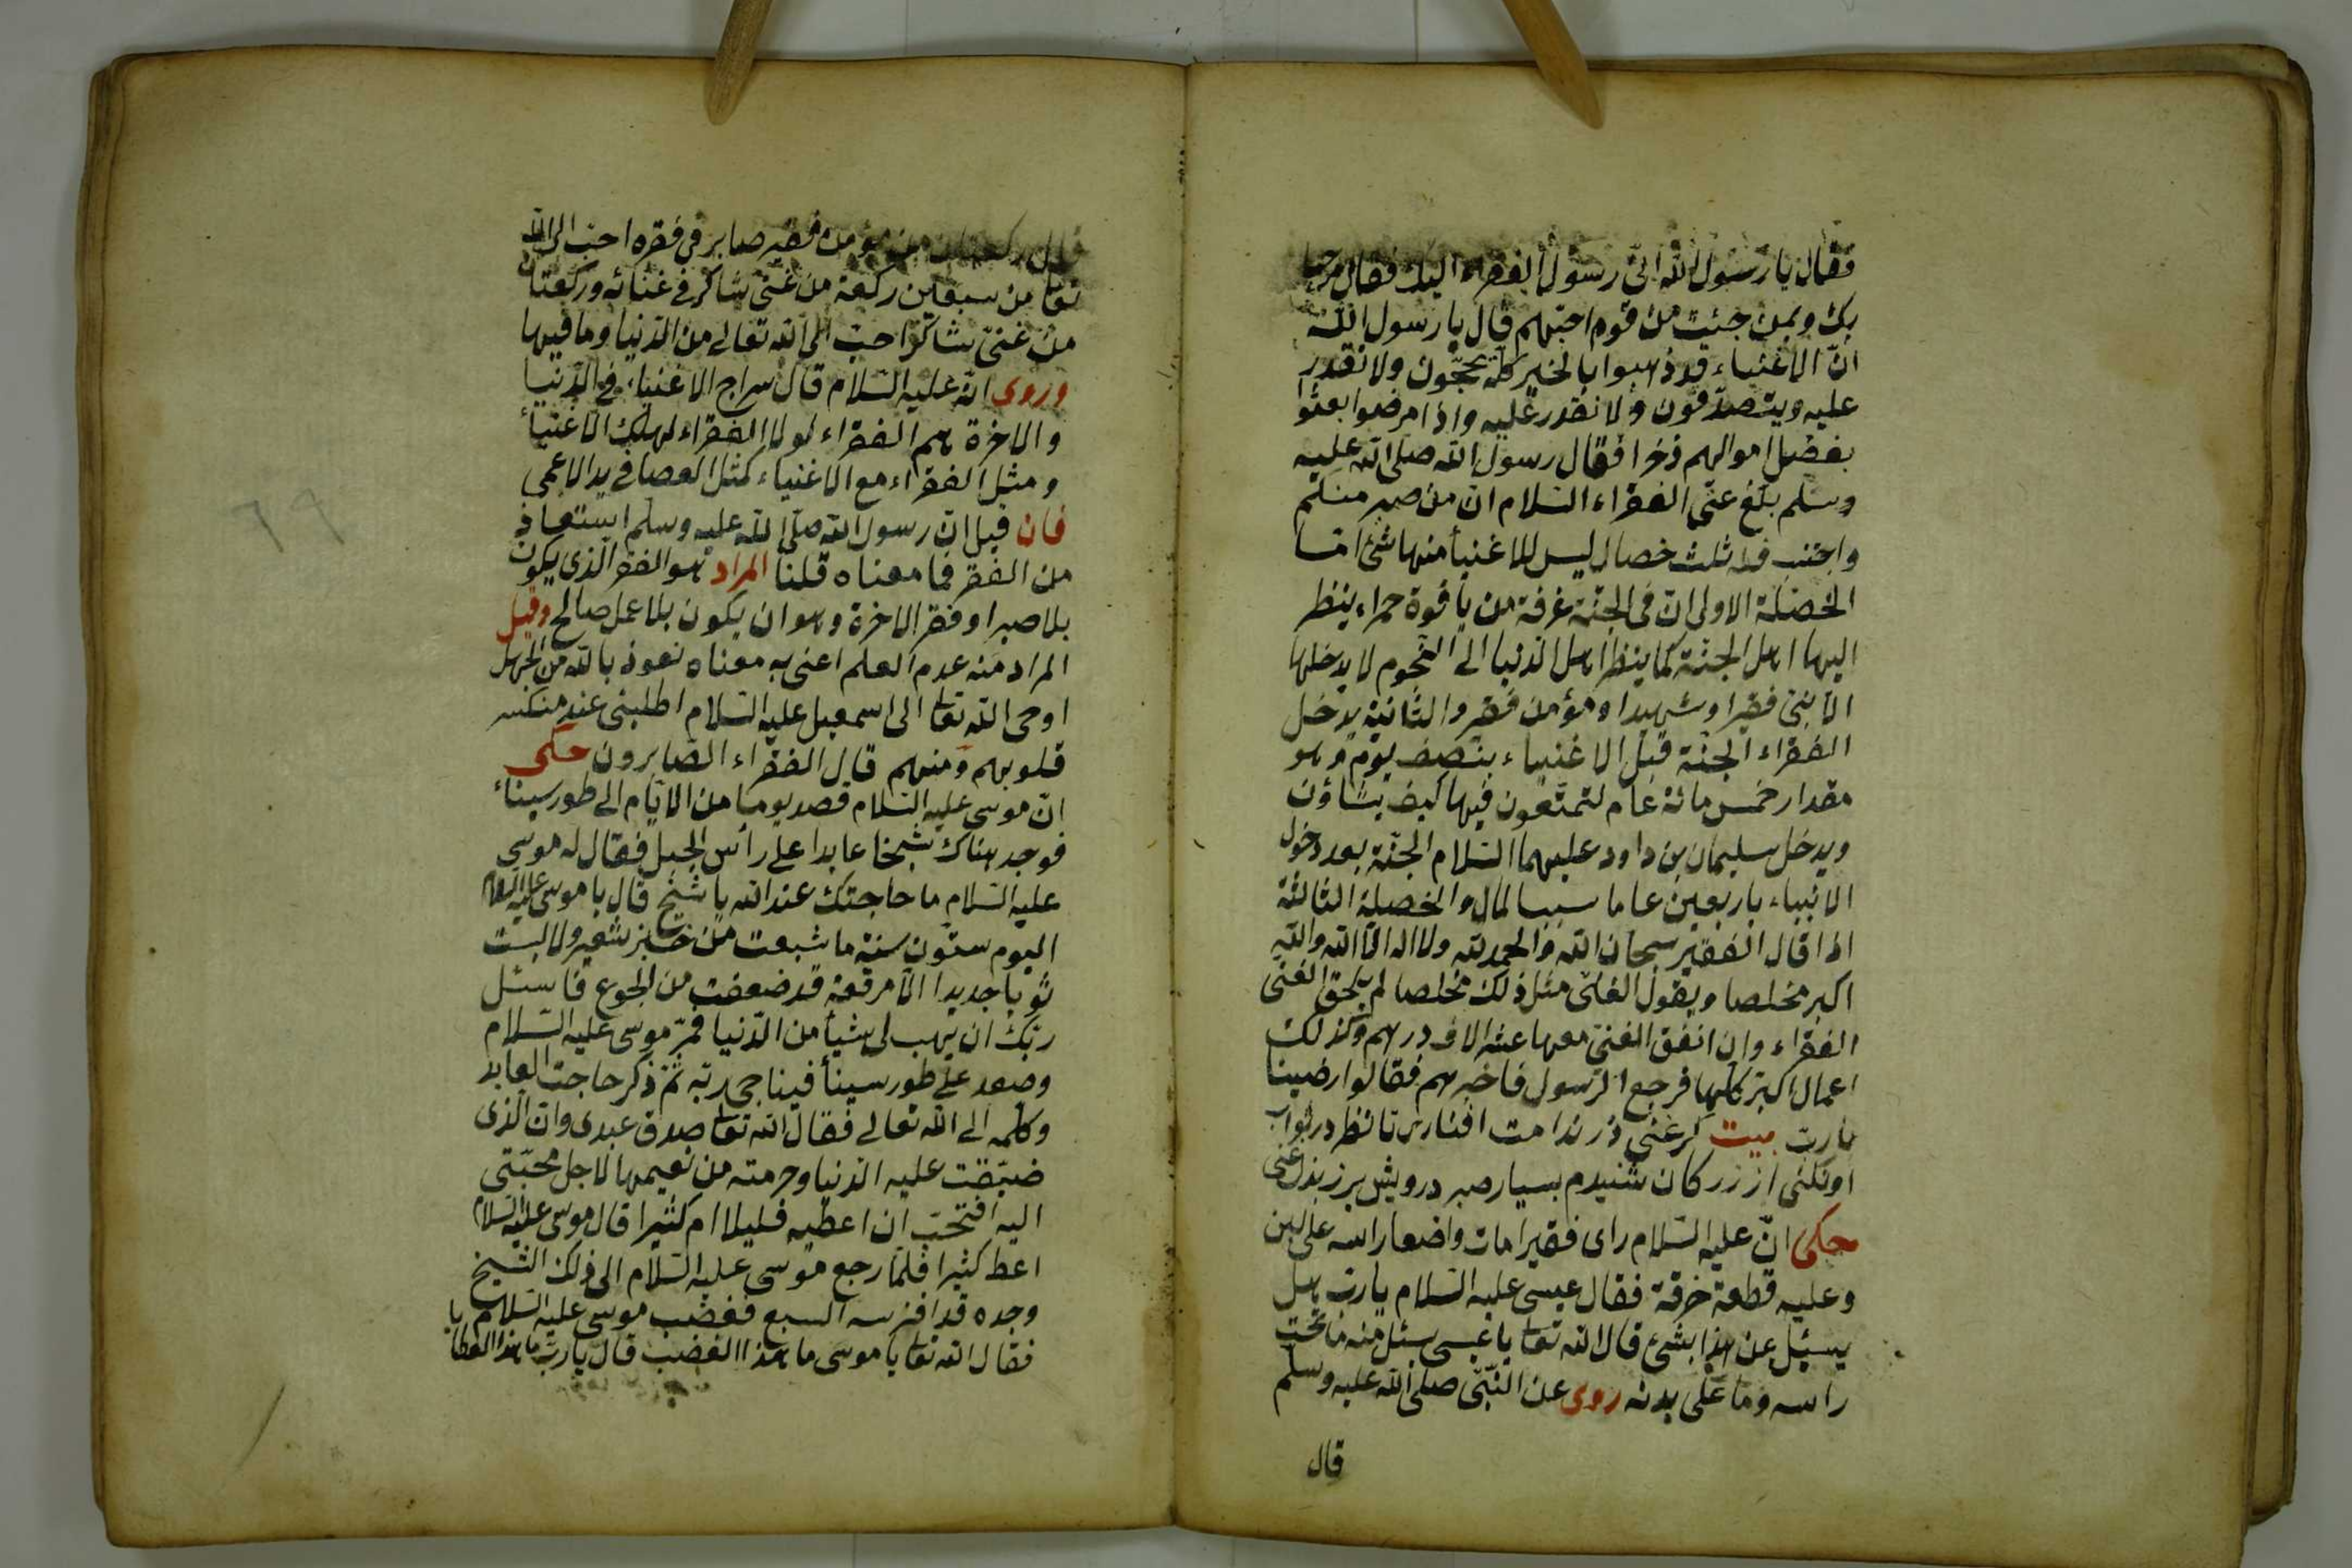 فقال يا رسول الله انى رسول الفقراء اليك فقال مرحبا
بك وبمن جئت من قوم احبهم قال يا رسول الله
ان الاغنياء قد ذهبوا بالخير كله يحجّون ولا نقدر
عليه ويتصدّقون ولا نقدر عليه واذا مرضوا بعثوا
بفضل اموالهم ذخرا فقال رسول الله صلى الله عليه
وسلم بلّغ عنّى الفقراء السلام ان من صبر منكم
واجتنب فله ثلث خصال ليس للاغنيأ منها شئ امّا
الخصلة الاولى انّ فى الجنّة غرفة من ياقوة حمراء ينظر
اليها اهل الجنّة كما ينظر اهل الدنيا الى النجوم لا يدخلها
الا نبىّ فقير او شهيد او مؤمن فقير والثانية يدخل
الفقراء الجنّة قبل الاغنياء بنصف يوم وهو
مقدار خمس مائة عام لتمتّعون فيها كيف يشاؤن
ويدخل سليمان بن داود عليهما السّلام الجنّة بعد دخول
الانبياء باربعين عاما سبب المال والخصلة الثالثة
اذا قال الفقير سبحان الله والحمد لله ولا اله الّا الله والله
اكبر مخلصا ويقول الغنى مثل ذلك مخلصا لم يلحق الغنى
الفقراء وان انفق الغنى معها عشر الاف درهم وكذلك
اعمال اكبر كلها فرجع الرّسول فاخبرهم فقالوا رضينا
يا ربّ بيت كر غنى زر بدامت افشارى تا نظر در ثواب
او نكنى از بزركان شنيدم بسيار صبر درويش بر ز بذل غنى
حكى انّ عليه السّلام راى فقيرا مات واضعا راسه على لبن
وعليه قطعة خرقة فقال عيسى عليه السّلام يا رب هل
يسئل عن هذا بشئ قال الله تعا يا عيسى سئل منه ما تحت
راسه وما على بدنه روى عن النّبىّ صلى الله عليه وسلّم
قال
قال ركعتان من مؤمن فقير صابر فى فقره احبّ الى الله
تعا من سبعين ركعة من غنىّ شاكر فى غنائه وركعتان
من غنىّ شاكر احبّ الى الله تعالى من الدّنيا وما فيها
وروى انّه عليه السّلام قال سراج الاغنياء فى الدّنيا
والاخرة هم الفقراء لولا الفقراء لهلك الاغنيأ
ومثل الفقراء مع الاغنياء كمثل العصا فى يد الاعمى
فان قيل انّ رسول الله صلّى الله عليه وسلّم استعاذ
من الفقر فما معناه قلنا المراد هو الفقر الذى يكون
بلا صبر او فقر الاخرة وهو ان يكون بلا عمل صالح وقيل
المراد منه عدم العلم اعنى به معناه نعوذ بالله من الجهل
اوحى الله تعا الى اسمعيل عليه السّلام اطلبنى عند منكسر
قلوبهم ومنهم قال الفقراء الصّابرون حكى
انّ موسى عليه السّلام قصد يوما من الايّام الى طور سيناء
فوجد هناك شيخا عابدا على رأس الجبل فقال له موسى
عليه السّلام ما حاجتك عند الله يا شيخ قال يا موسى عليه السلام
اليوم ستون سنة ما شبعت من خبز شعير ولا لبست
ثوبا جديدا الّا مرقعة قد ضعفت من الجوع فاسئل
ربّك ان يهب لى شيأ من الدّنيا فمرّ موسى عليه السّلام
وصعد على طور سينأ فيناجى ربّه ثمّ ذكر حاجت العابد
وكلّمه الى الله تعالى فقال الله تعا صدق عبدى وانّ الّذى
ضيّقت عليه الدّنيا وحرمته من نعيمها لاجل محبّتى
اليه افتحبّ ان اعطيه قليلا ام كثيرا قال موسى عليه السّلام
اعط كثيرا فلمّا رجع موسى عليه السّلام الى ذلك الشّيخ
وجده قد افترسه السبع فغضب موسى عليه السّلام
فقال الله تعا يا موسى ما هذا الغضب قال يا ربّ ما هذا العطا
٦٩